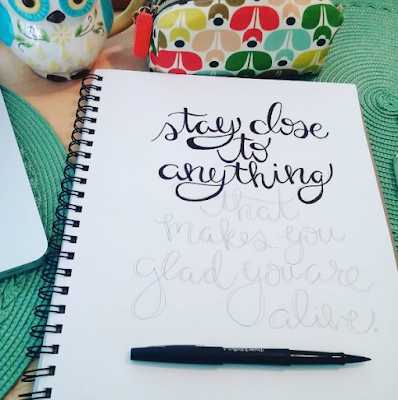 stay close
to
anything
that
makes you
glad you are
alive.